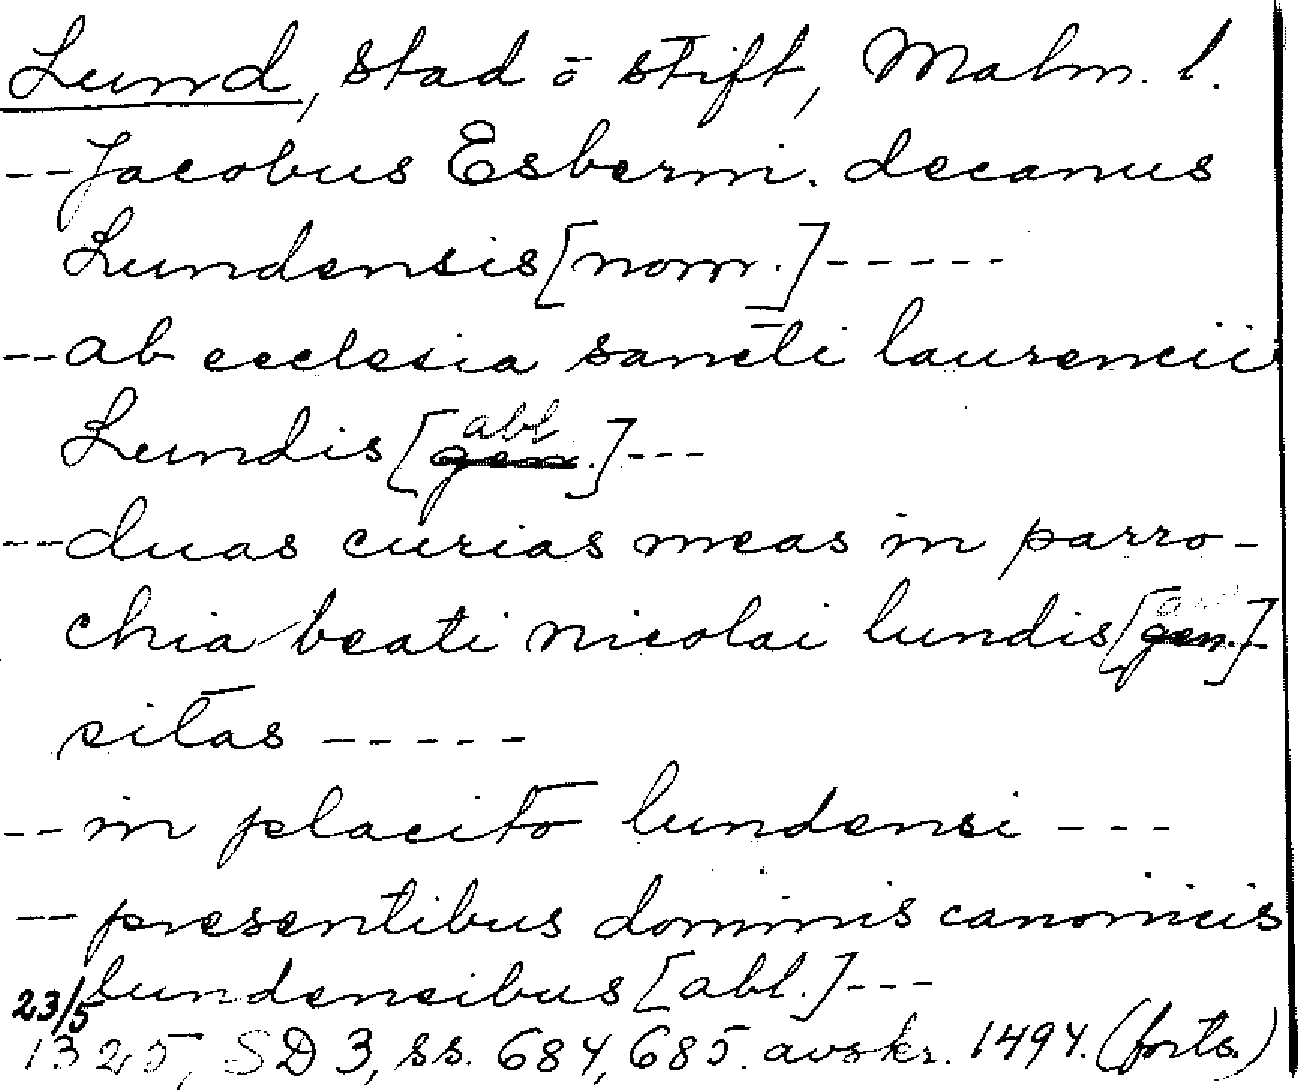 Lund, stad o stift, Malm. l.
-- Jacobus Esberni. decanus
Lundensis [nom.] -----
-- ab ecclesia sancti laurencii
Lundis [abl gen.] ---
-- duas curias meas in parro-
chia beati nicolai lundis [gen.]
sitas -----
-- in placito lundensi ---
-- presentibus dominis canonicis
lundensibus [abl.] ---
23/5
1325, SD 3, ss. 684, 685. avskr. 1494. (forts.)